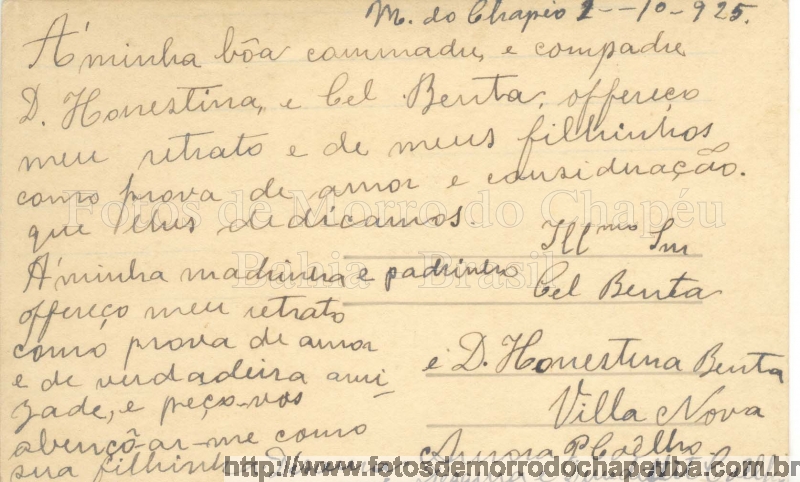 M. do Chapéo 1--10-925.
A'minha bôa commadre, e compadre
D. Honestina, e Cel Benta, offereço
meu retrato e de meus filhinhos
como prova de amor e consideração.
que lhes dedicamos.
A'minha madrinha e padrinho
offereço meu retrato
como prova de amor
e de verdadeira ami-
zade, e peço-vos
abençô-ar-me como
sua filhinha
Illmo Snr
Cel Benta
e D. Honestina Benta
Villa Nova
Aurora P Coêlho
Fotos de Morro do Chapéu
Bahia - Brasil
http://www.fotosdemorrodochapeuba.com.br